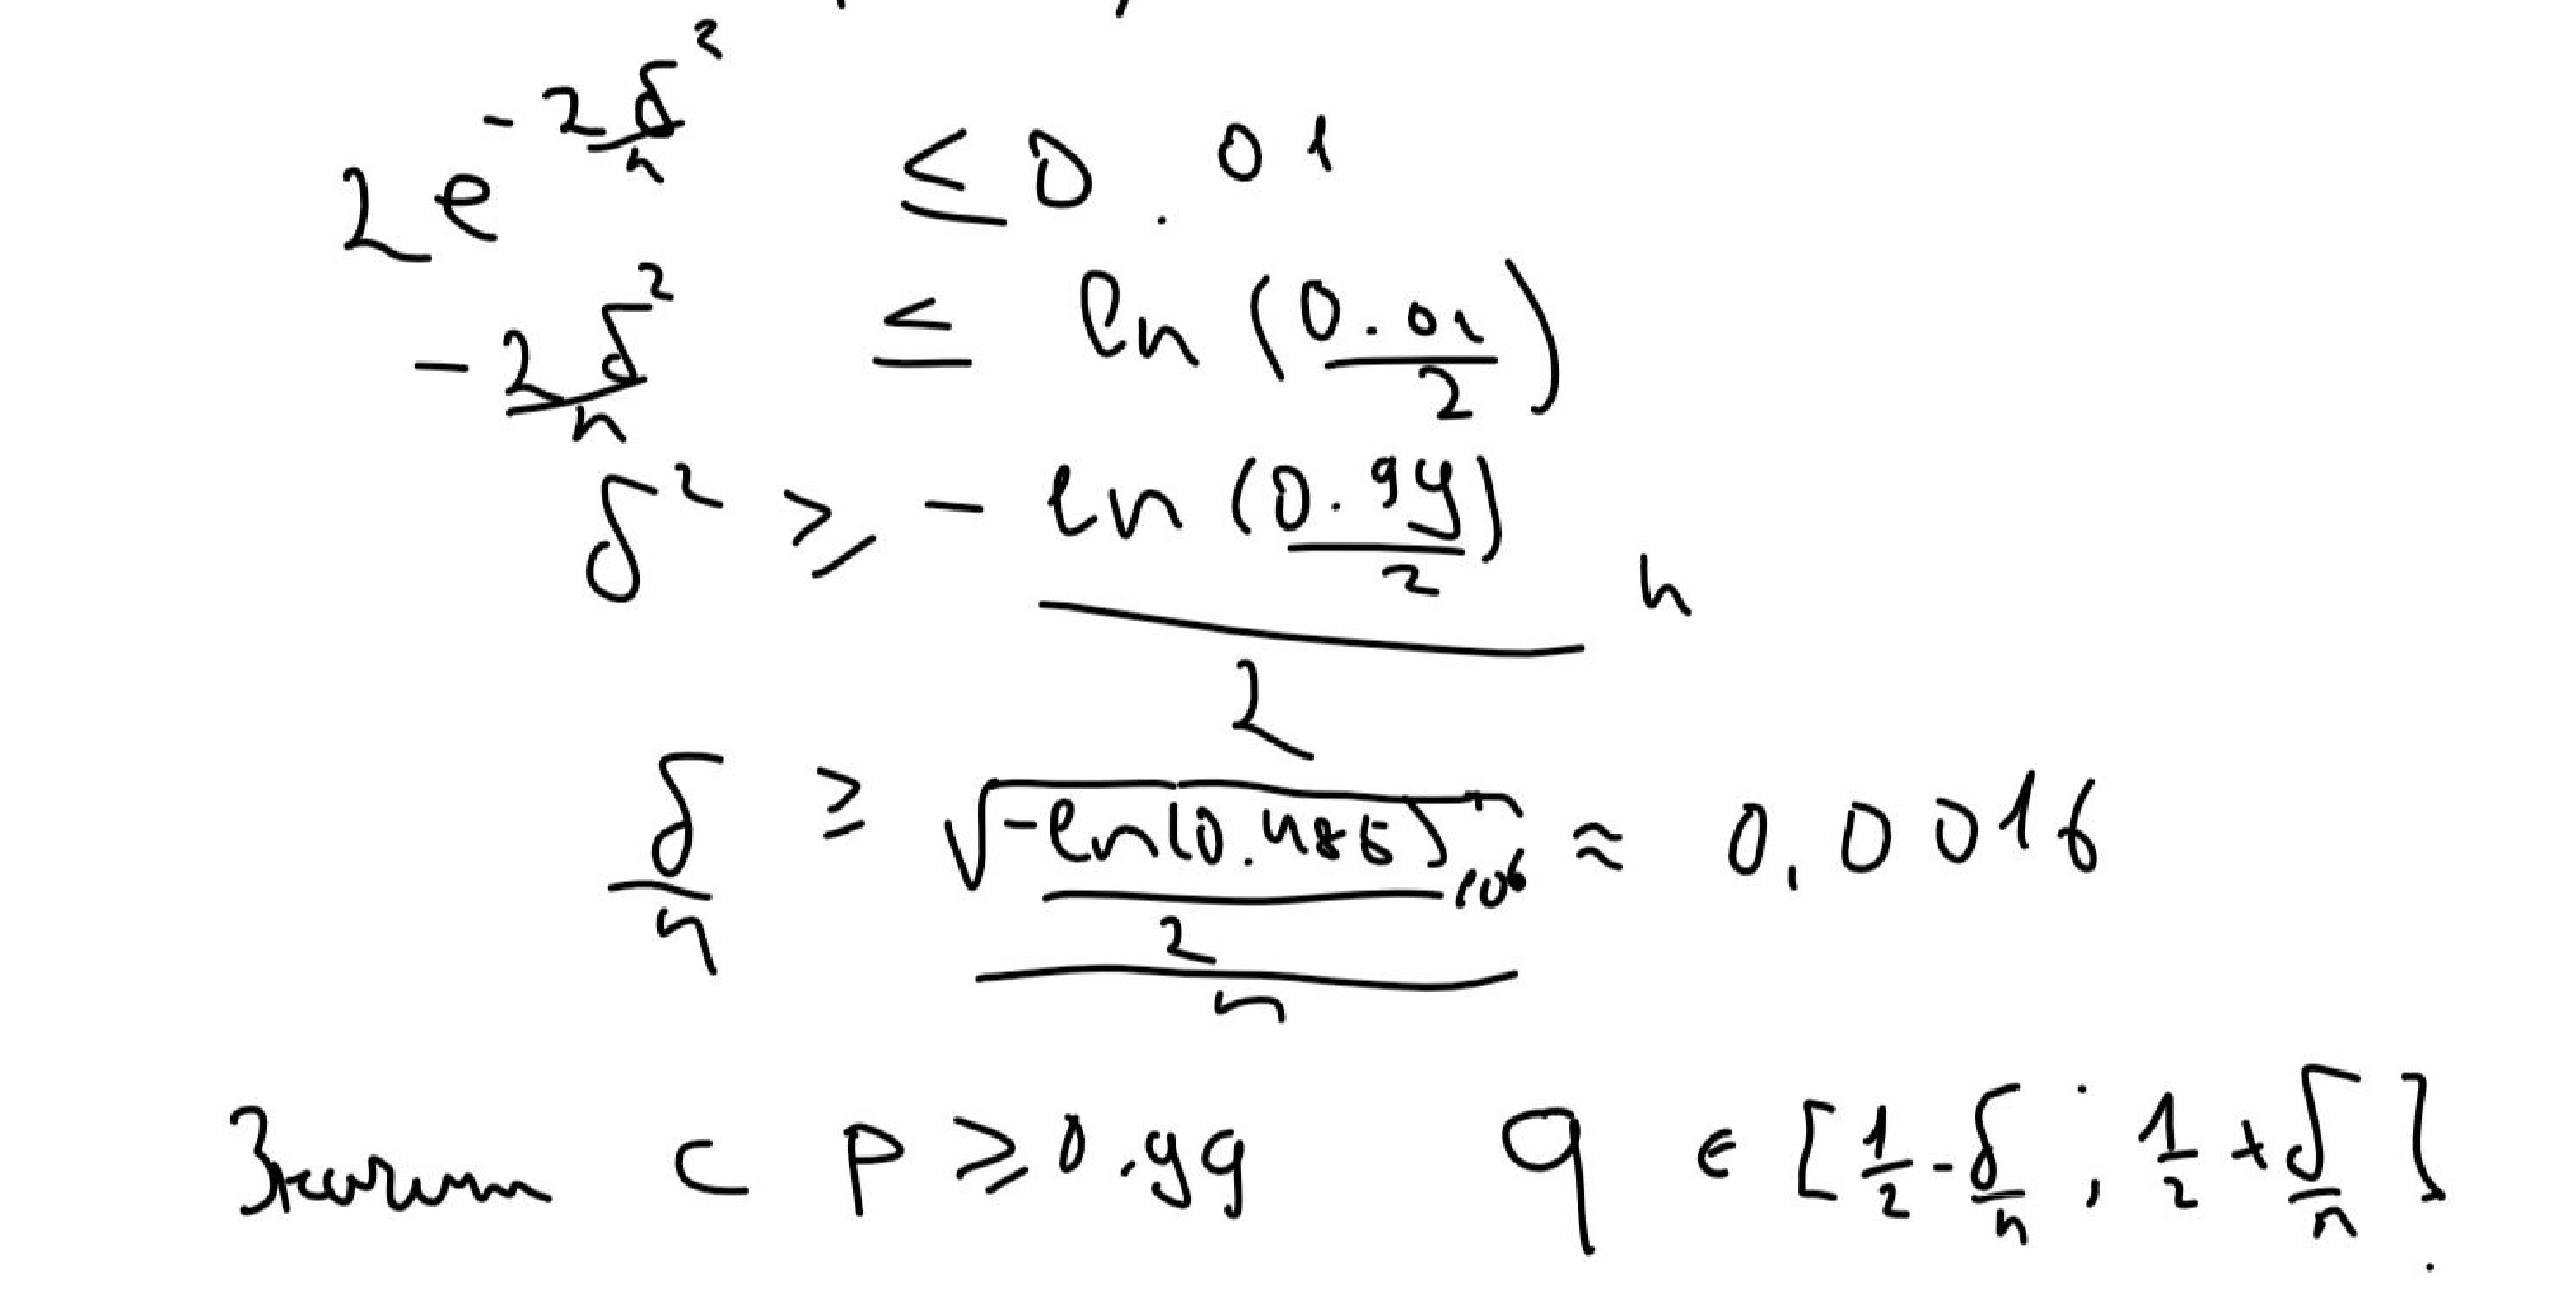 2e^{-\frac{2δ^2}{n}} ≤ 0.01
-\frac{2δ^2}{n} ≤ ln(\frac{0.01}{2})
δ^2 ≥ -\frac{ln(\frac{0.99}{2})}{2} n
\frac{δ}{n} ≥ \frac{\sqrt{\frac{-ln(0.485)}{2} 10^6}}{n} ≈ 0,0016
Значит с p ≥ 0.99 q ∈ [\frac{1}{2} - \frac{δ}{n}; \frac{1}{2} + \frac{δ}{n}].